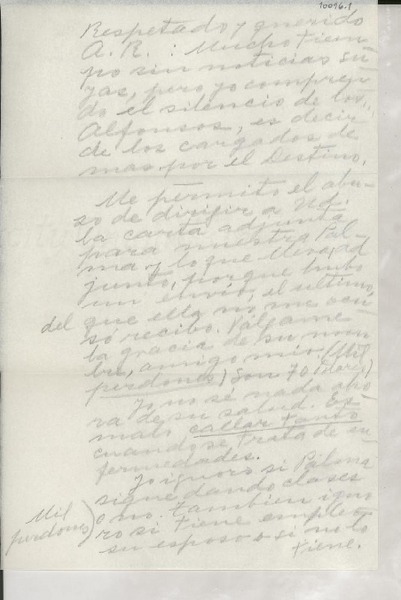 10096.1
Respetado y querido
A. R. : Mucho tiem-
po sin noticias su-
yas, pero yo compren-
do el silencio de los
Alfonsos, es decir
de los cargados de
mas por el Destino.
Me permito el abu-
so de dirigir a Ud.
la carta adjunta
para nuestra Pal-
ma y lo que lleva ad
junto, porque hubo
un envío, el ultimo,
del que ella no me acu-
só recibo. Pálpame
la gracia de su nom-
bre, amigo mío. (Mil
perdones) Son 70 dlares)
Yo no sé nada aho-
ra de su salud. Es
malo callar tanto
cuando se trata de en-
fermedades.
Yo ignoro si Palma
sigue dando clases
o no. Tambien igno-
ro si tiene empleo
su esposo o si no lo
tiene.
Mil
perdones)